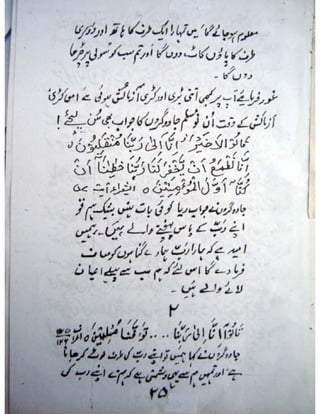 معلوم ہو جائے گا میں تمہارا ایک طرف کا ہاتھ اور دوسری
طرف کا پاؤں کاٹ دوں گا اور تم سب کو سولی پر چڑھا
دوں گا۔
غور فرمائے آپ پر کبھی اتنی بڑی اور کڑی آزمائش ہوئی ہے اسی کڑی
آزمائش کے وقت ان نو مسلم جادوگروں کا جواب بھی سن لیجئے!
قَالُوْا لَاضَيْرَ اِنَّا اِلٰى رَبِّنَا مُنْقَلِبُوْنَ ٥
اِنَّا نَطْمَعُ اَنْ يَّغْفِرَ لَنَا رَبُّنَا خَطٰيٰنَا اَنْ
كُنَّا اَوَّلَ الْمُؤْمِنِيْنَ ٥ الشعراء
جادوگروں نے جواب دیا کوئی بات نہیں بیشک ہم تو
اپنے رب کے پاس پہنچنے والے ہیں۔ ہمیں
امید ہے کہ ہمارا رب ہمارے گناہوں کو معاف
فرما دے گا اس لئے کہ ہم سب سے پہلے ایمان
لانے والے ہیں۔
٢
قَالُوْا اِنَّا اِلٰى رَبِّنَا .... تَوَفَّنَا مُسْلِمِيْنَ ٥
جادوگروں نے کہا ہمیں تو اپنے رب کی طرف لوٹ کر جانا
ہے اور تمہیں ہم سے یہی دشمنی ہے کہ ہم نے اپنے رب کی
٢٥